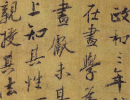 政和三年
在畫學為
畫獻未甚
上知其性
親授其法